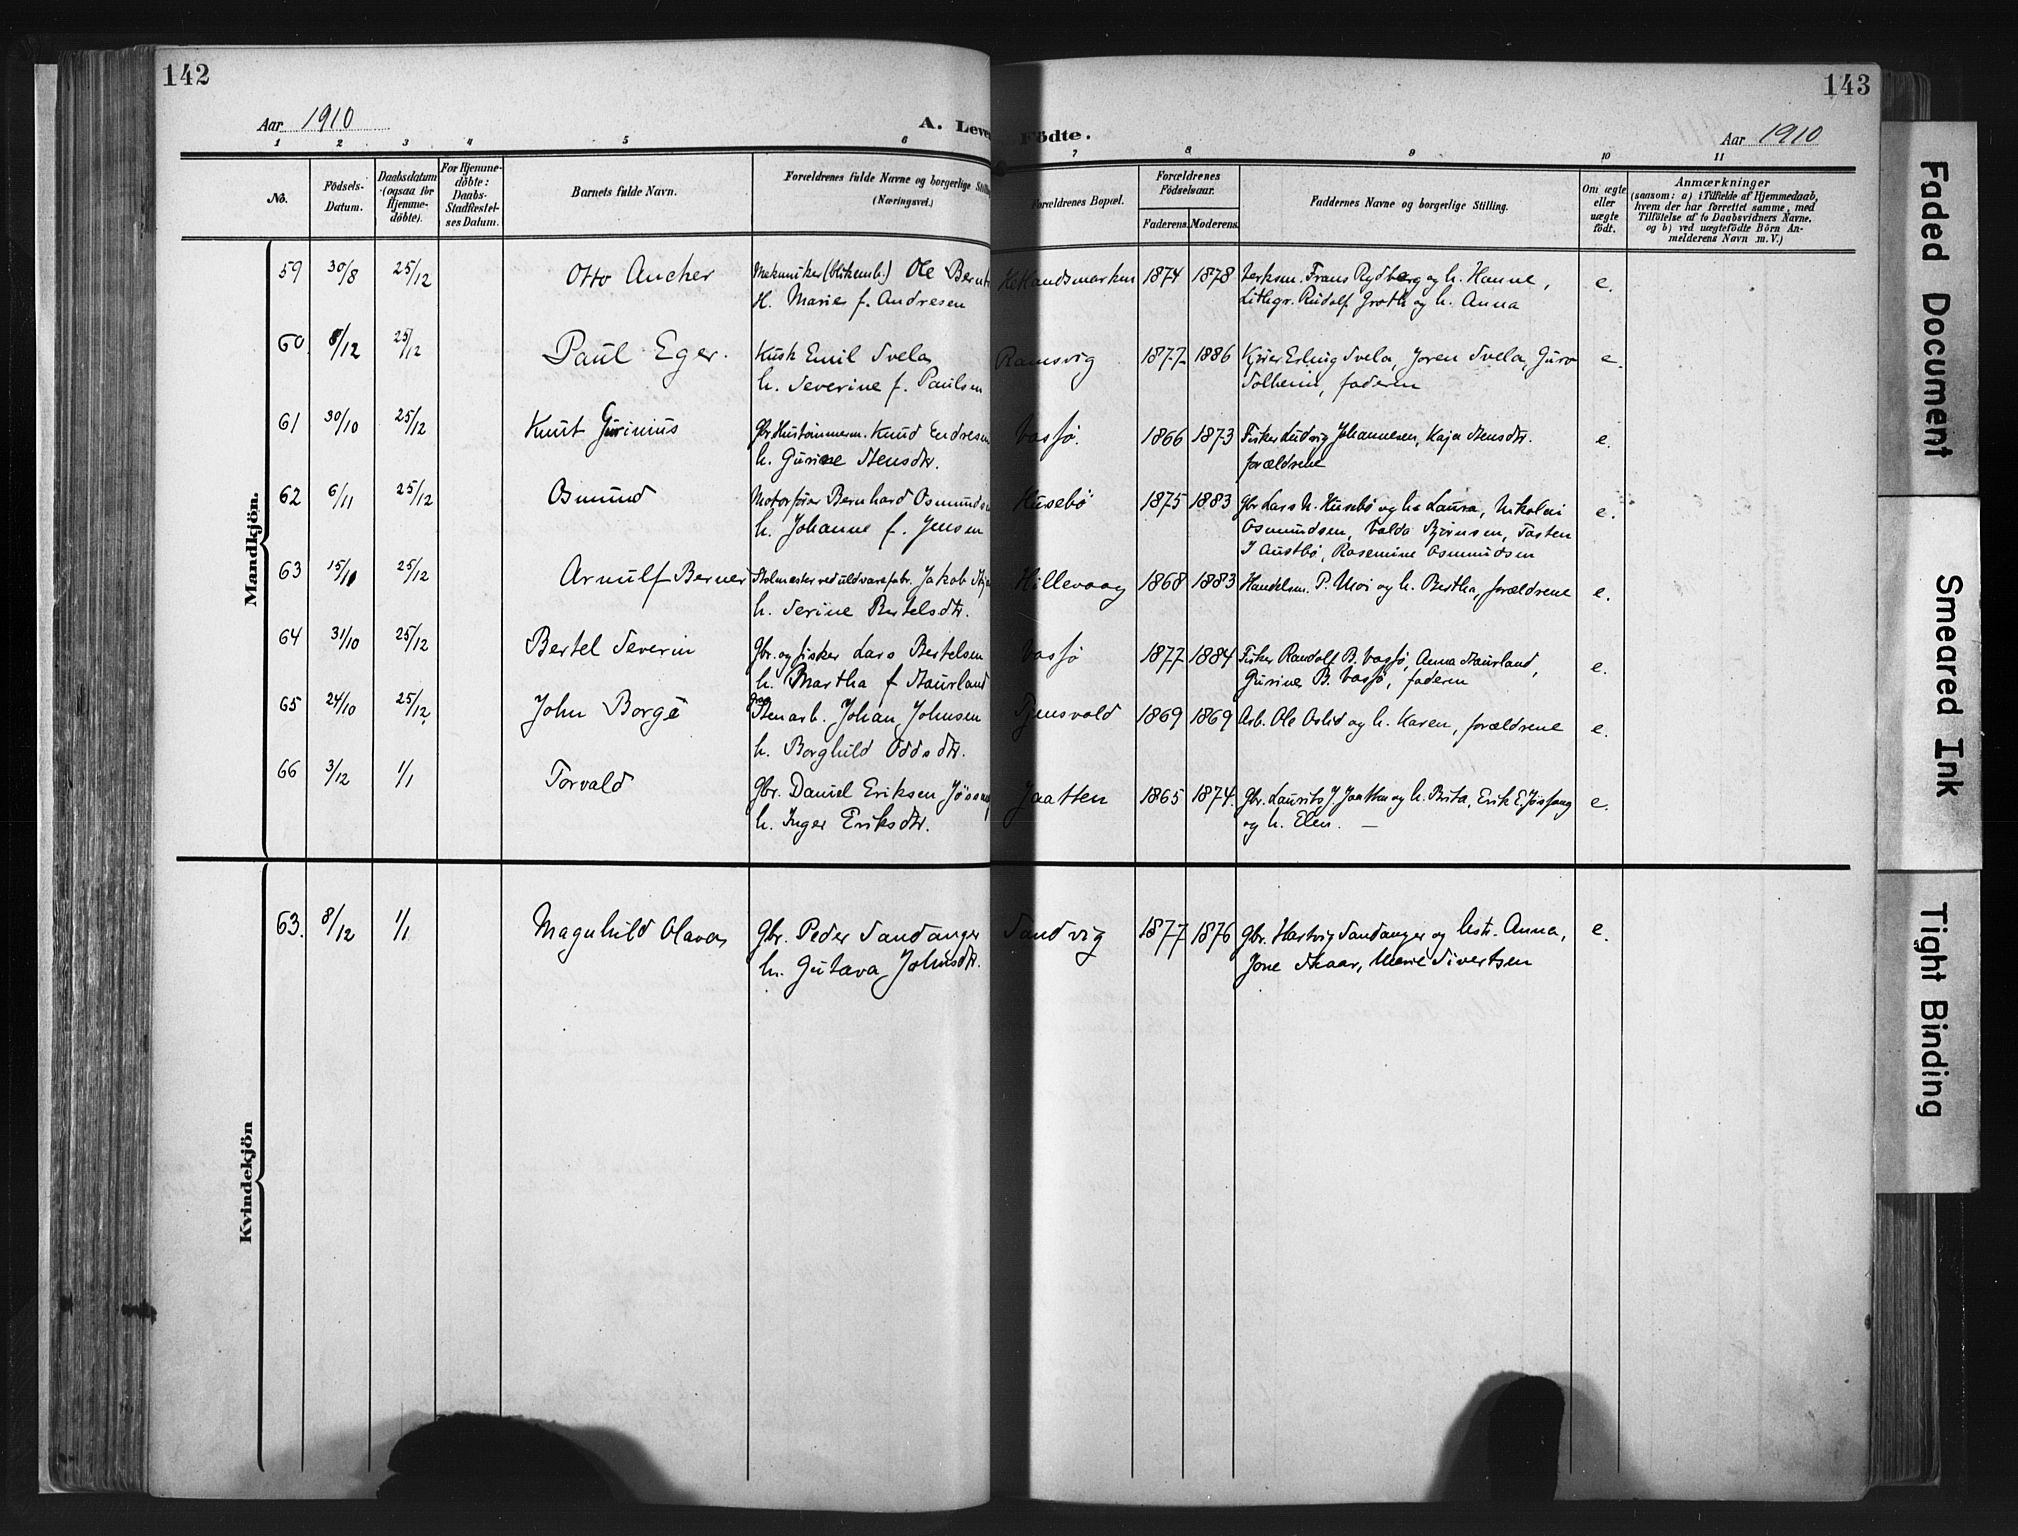 142
143
Aar 1910
A. Leve
Födte.
Aar 1910
1 2 3 4 5 6 7 8 9 10 11
No.
Födsels-
Datum.
Daabsdatum
(ogsaa for
Hjemme-
döbte).
For Hjemme-
döbte:
Daabs-
Stadfæstel-
ses Datum.
Barnets fulde Navn.
Forældrenes fulde Navne og borgerlige Stilling
(Næringsvei.)
Forældrenes Bopæl.
Forældrenes
Födselsaar.
Faderens. Moderens.
Faddernes Navne og borgerlige Stilling.
Om ægte
eller
uægte
födt.
Anmærkninger
(saasom: a) i Tilfælde af Hjemmedaab,
hvem der har forrettet samme, med
Tilföielse af to Daabsvidners Navne.
og b) ved uægtefödte Börn An-
melderens Navn m. V.)
Mandkjön.
59 30/8 25/12 Otto Ancher Mekaniker (blikenb.) Ole Bernt Hetlandsmarken 1874 1878 Frans Rydberg og h. Hanne, e.
H. Marie f. Andresen Lithgr. Rudolf Groth og h. Anna
60. 8/12 25/12 Paul Eger. Kusk Emil Svela Ramsvig 1877 1886 Erling Svela, Joren Svela, Guro e.
h. Severine f. Paulsen Solheim, faderen
61 30/10 25/12 Knut Gurinius Gbr. Hustømmerm. Knud Endresen Vasfö. 1866 1873 Fisker Ludvig Johannesen, Kaja Stensdtr. e.
h. Gurine Stensdtr. forældrene
62 6/11 25/12 Osmund Motorfører Bernhard Osmundsen Husebö 1875 1883 Gbr. Lars N. Husebö og h. Laura, Nikolai e.
h. Johanne f. Jensen Osmundsen, Valda Bjørnsen, Tasten
J Austbø, Rosemine Osmundsen
63 15/10 25/12 Arnulf Berner ved uldvarefabr. Jakob Hillevaag 1868 1883 Handelsm. P. Moi og h. Bertha, forældrene e.
h. Serine Bertelsdtr.
64 31/10 25/12 Bertel Severin Gbr. og fisker Lars Bertelsen Vasfö 1877 1884 Fisker Randolf B. Vasfö, Anna Staurland, e.
h. Martha f Staurland Gurine B. Vasfö, faderen
65 24/10 25/12. John Borgë Stenarb. Johan Johnsen Tjensvold 1869 1869 Arb. Ole Oslid og h. Karen, forældrene e.
h. Borghild Oddsdtr.
66 3/12 1/1 Torvald Gbr. Daniel Eriksen Jaatten 1865 1874. Gbr. Laurits J. Jaatten og h. Brita, Erik E. Jösfang e.
h. Inger Eriksdtr. og h. Elen. —
Kvindekjön
63. 8/12 1/1 Magnhild Olava Gbr. Peder Sandanger Sandvig 1877 1876 Gbr. Hartvig Sandanger og hstr. Anna, e.
h. Gutava Johnsdtr. Jone Skaar, Marie Sivertsen
Faded Document
Smeared Ink
Tight Binding